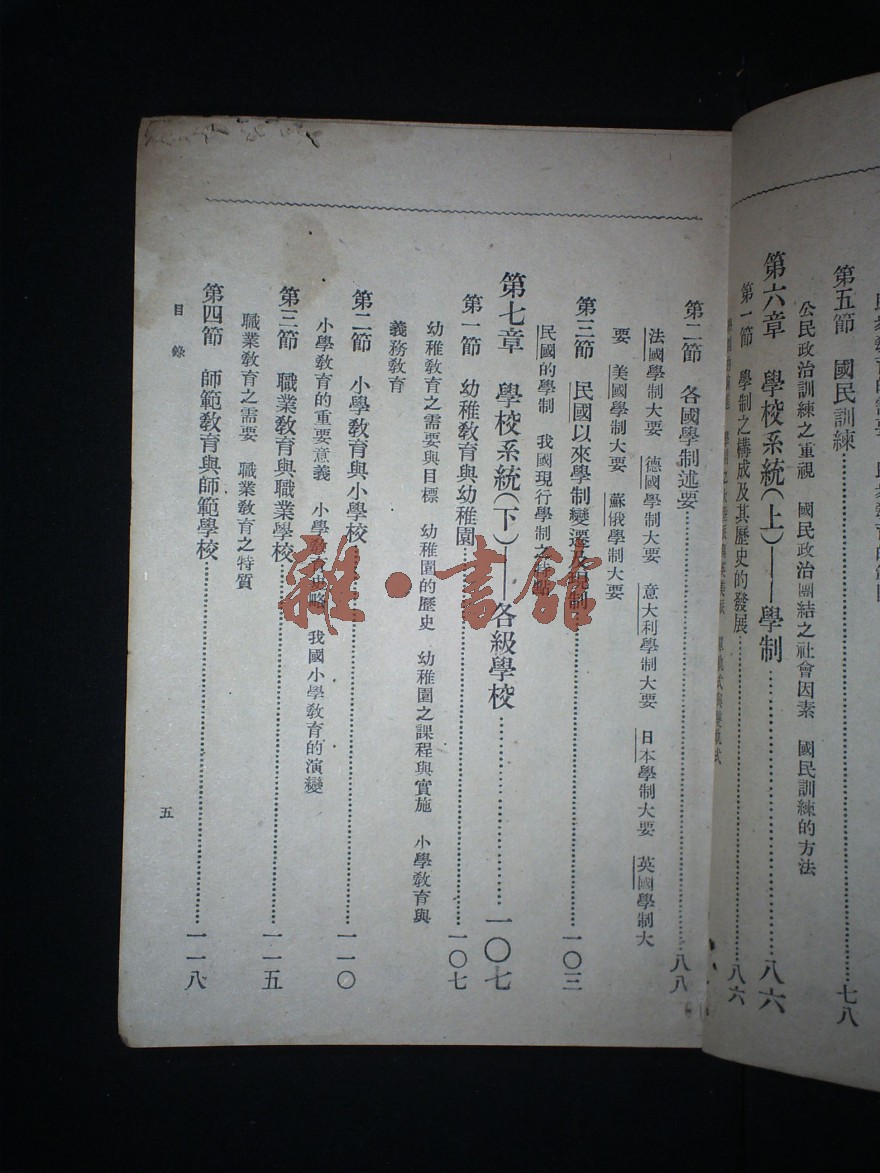 第五節　國民訓練……七八
公民政治訓練之重視　國民政治團結之社會因素　國民訓練的方法
第六章　學校系統(上)——學制……八六
第一節　學制之構成及其歷史的發展……八六
第二節　各國學制述要……八八
法國學制大要　德國學制大要　意大利學制大要　日本學制大要　英國學制大
要　美國學制大要　蘇俄學制大要
第三節　民國以來學制變遷及現制……一〇三
民國的學制　我國現行學制之特點
第七章　學校系統(下)——各級學校……一〇七
第一節　幼稚教育與幼稚園……一〇七
幼稚教育之需要與目標　幼稚園的歷史　幼稚園之課程與實施　小學教育與
義務教育
第二節　小學教育與小學校……一一〇
小學教育的重要意義　小學教育史略　我國小學教育的演變
第三節　職業教育與職業學校……一一五
職業教育之需要　職業教育之特質
第四節　師範教育與師範學校……一一八
目錄　五
雜·書館